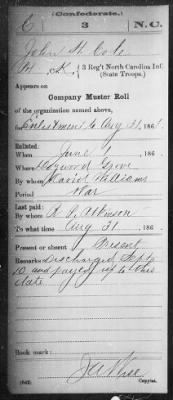 (Confederate.)
C 3 N.C.
John H. Cole
, Co. K, 3 Reg't North Carolina Inf.
(State Troops.)
Appears on
Company Muster Roll
of the organization named above,
for Enlistment to Aug 31, 186
Enlisted:
When June 1, 186
Where Hogwood Grove
By whom David Williams
Period War
Last paid:
By whom R P Atkinson
To what time Aug 31, 186
Present or absent Present
Remarks: Discharged Sept
10 and payed up to this
date
Book mark:
(642) Copyist.